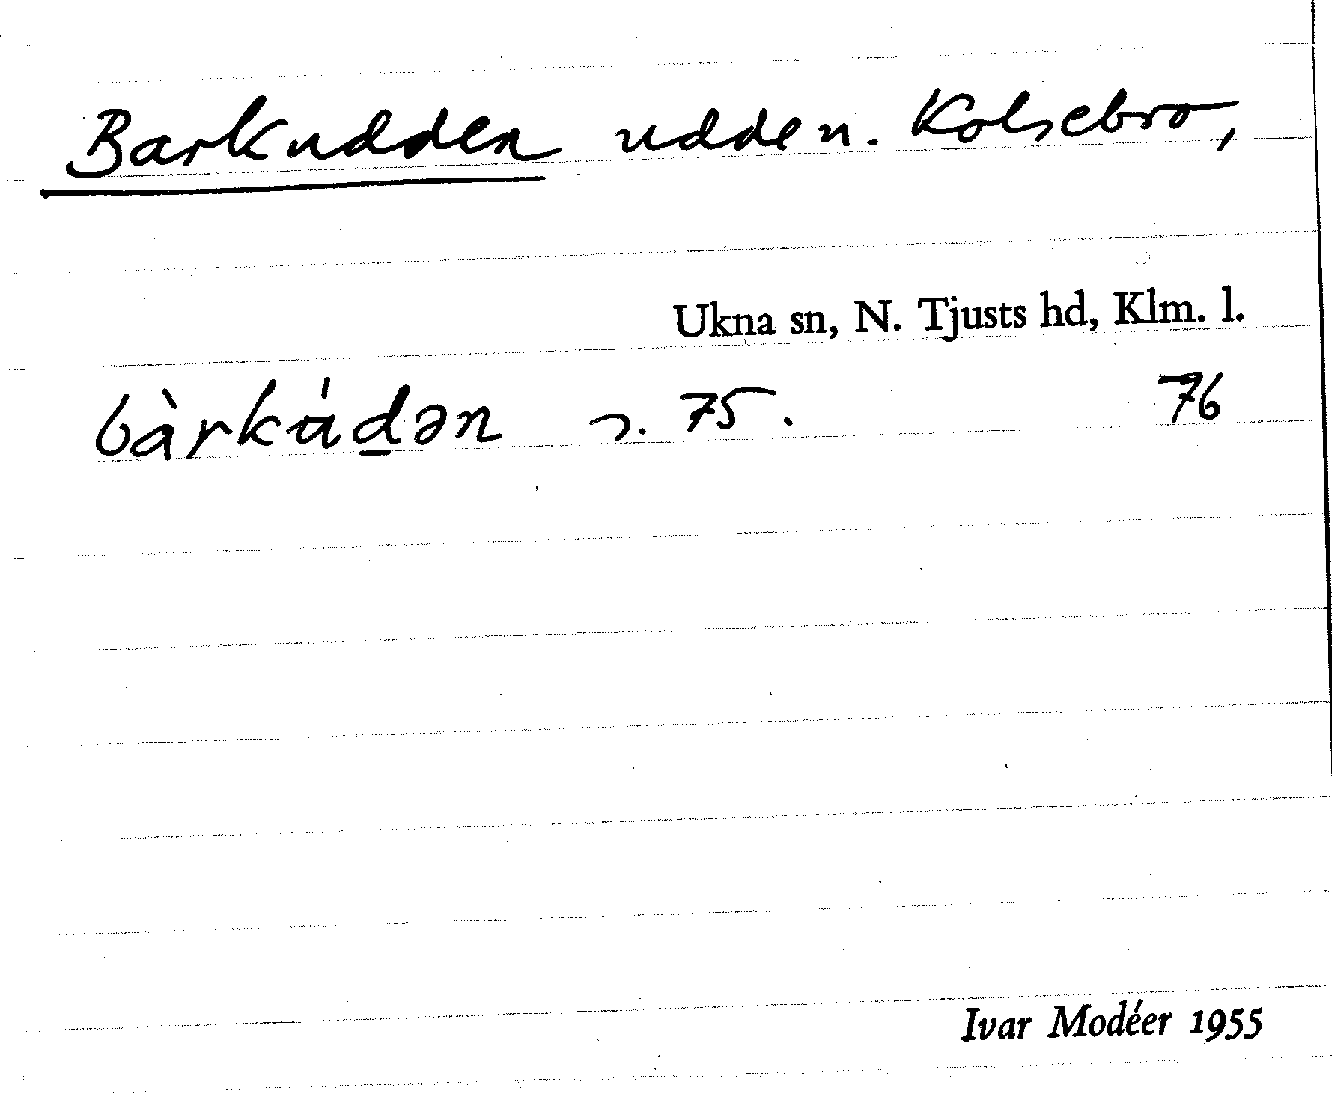 Barkudden udden. Kolsebro,
Ukna sn, N. Tjusts hd, Klm. l.
bàrkùdən 75. 76
Ivar Modéer 1955